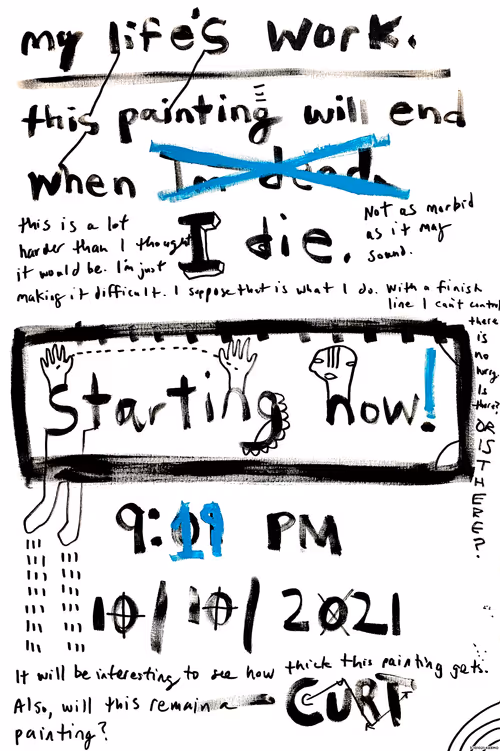 my life's work.
this painting will end
when I'm dead.
I die.
this is a lot
harder than I thought
it would be. I'm just
making it difficult. I suppose that is what I do. With a finish
line I can't control
Not as morbid
as it may
sound.
there
is
no
hurry
Is
there?
OR
IS
THERE?
Starting now!
9:19 PM
10/10/2021
It will be interesting to see how thick this painting gets.
Also, will this remain a
painting?
CURT